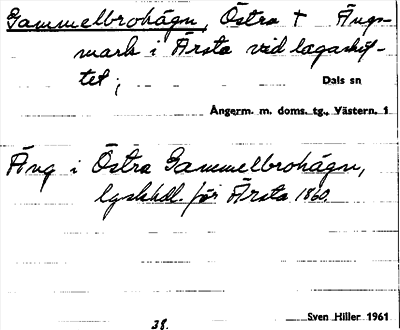 Gammelbrohägn, Östra † Ängs-
mark i Ärsta vid lagaskif-
tet;
Dals sn
Ångerm. m. doms. tg., Västern. 1
Äng i Östra Gammelbrohägn,
lgskhdl. för Ärsta 1860.
38.
Sven Hiller 1961